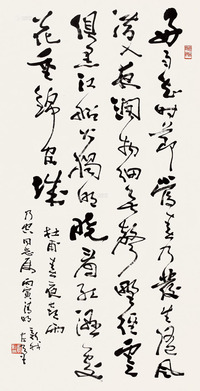 好雨知時節當春乃發生隨風
潛入夜潤物細無聲野徑雲
俱黑江船火獨明曉看紅濕處
花重錦官城
杜甫春夜喜雨
同志屬丙寅